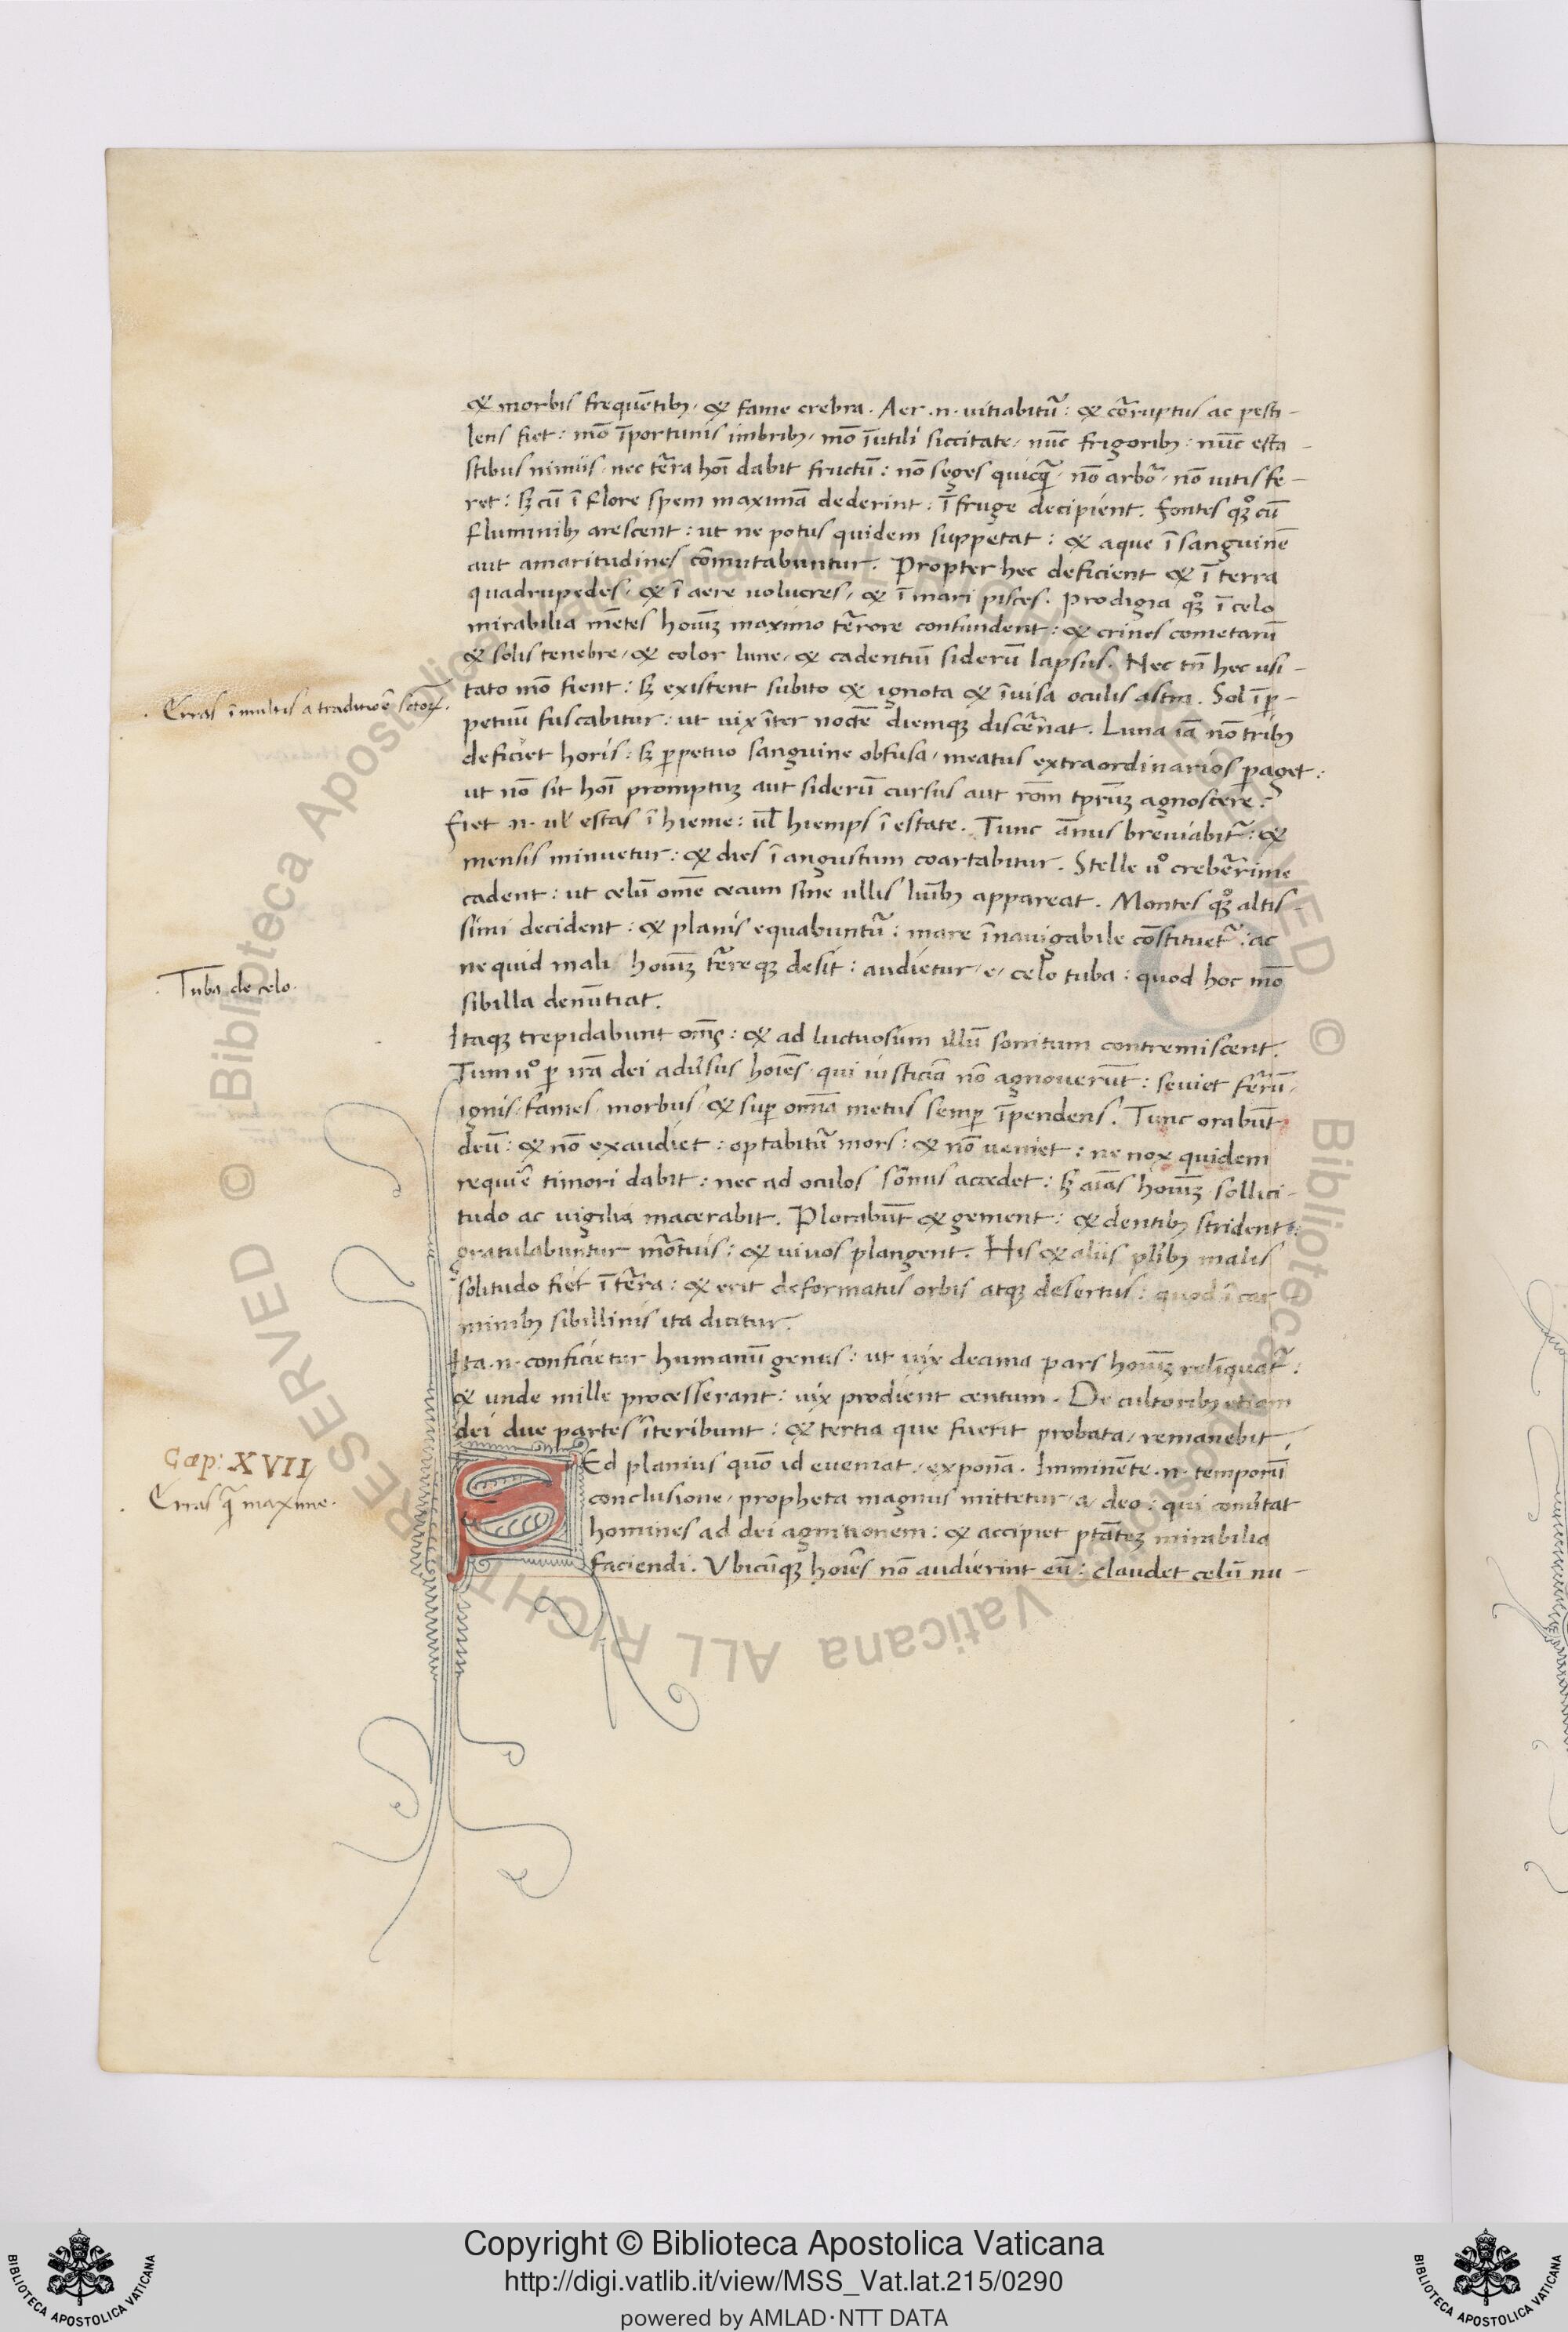 & morbis frequẽtibꝫ, & fame crebra. Aer .n. uitiabitur̃: & cor̃ruptus ac pesti-
lens fiet: mõ ĩportunis imbribꝫ, mõ ĩutili siccitate, nũc frigoribꝫ: nũc esta-
stibus nimiis, nec ter̃ra hoĩ dabit fructũ: nõ seges quicq̃, nõ arbor̃, nõ uitis fe-
ret: sꝫ cũ ĩ flore spem maximã dederint: ĩ fruge decipient. Fontes qꝫ cũ
fluminibꝫ arescent: ut ne potus quidem suppetat: & aque ĩ sanguinẽ
aut amaritudines cõmutabuntur. Propter hec deficient & ĩ terra
quadrupedes, & ĩ aere uolucres, & ĩ mari pisces. Prodigia qꝫ ĩ celo
mirabilia mẽtes hoĩuꝫ maximo ter̃rore confundent: & crines cometarũ
& solis tenebre, & color lune, & cadentiũ siderũ lapsus. Nec tñ hec usi-
tato mõ fient: sꝫ existent subito & ignota & ĩuisa oculis astra. Sol ĩ ꝑ-
petuũ fuscabitur: ut uix ĩter noctẽ diemqꝫ discer̃nat. Luna iã nõ tribꝫ
deficiet horis: sꝫ ꝑpetuo sanguine obfusa, meatus extraordinarios ꝑaget:
ut nõ sit hoĩ promptuꝫ aut siderũ cursus aut rõm tpr̃uꝫ agnoscere.
Fiet .n. ul̃ estas ĩ hieme: ul̃ hiemps ĩ estate. Tunc ãnus breuiabitr̃: &
mensis minuetur: & dies ĩ angustum coartabitur. Stelle uº creber̃rime
cadent: ut celũ omẽ cecum sine ullis luĩbꝫ appareat. Montes qꝫ altis-
simi decident: & planis equabuntur̃: mare ĩnauigabile cõstituetr̃: ac
nequid mali hoĩuꝫ ter̃reqꝫ desit: audietur, e, celo tuba: quod hoc mõ
sibilla denũtiat.
Itaqꝫ trepidabunt om̃s: & ad luctuosum illũ sonitum contremiscent.
Tum uº ꝑ irã dei adũsus hoĩes, qui iusticiã nõ agnouerũt: seuiet ferũ,
ignis, fames, morbus, & suꝑ omĩa metus semꝑ ĩpendens. Tunc orabũt
deũ: & nõ exaudiet: optabitur̃ mors: & nõ ueniet: ne nox quidem
requiẽ timori dabit: nec ad oculos sõnus accedet: sꝫ aĩas hoĩuꝫ sollici-
tudo ac uigilia macerabit. Plorabũt & gement: & dentibꝫ strident:
gratulabuntur mõrtuis: & uiuos plangent. His & aliis pl̃ibꝫ malis
solitudo fiet ĩ ter̃ra: & erit deformatus orbis atqꝫ desertus: quod ĩ car-
minibꝫ sibillinis ita dicitur.
Ita .n. conficietur humanũ genus: ut uix decima pars hoĩuꝫ relĩquatr̃:
& unde mille processerant: uix prodient centum. De cultoribꝫ etiam
dei due partes ĩteribunt: & tertia que fuerit probata, remanebit.
SEd planius quõ id eueniat, exponã. Imminẽte .n. temporũ
conclusione, propheta magnus mittetur, a, deo: qui conũtat
homines ad dei agnitionem: & accipiet ptãteꝫ mirabilia
faciendi. Vbicũqꝫ hoĩes nõ audierint eũ: claudet celũ nu-
Erras ĩ multis a traditiõe sctorꝝ.
Tuba de celo.
Cap: XVII
Erras q̃ maxime.
Copyright © Biblioteca Apostolica Vaticana
http://digi.vatlib.it/view/MSS_Vat.lat.215/0290
powered by AMLAD·NTT DATA
BIBLIOTECA APOSTOLICA VATICANA
BIBLIOTECA APOSTOLICA VATICANA
© Biblioteca Apostolica Vaticana ALL RIGHTS RESERVED © Biblioteca Apostolica Vaticana ALL RIGHTS RESERVED